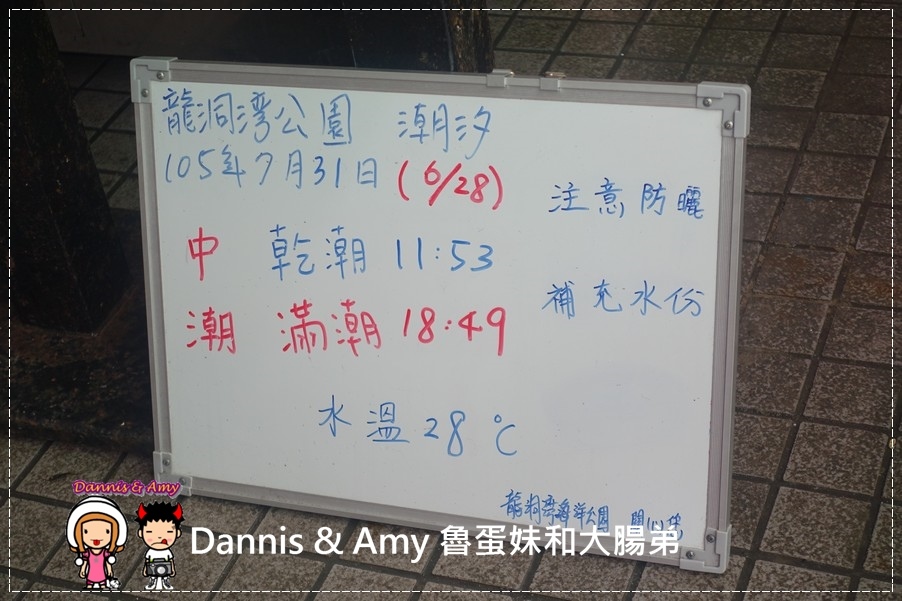 龍洞湾公園 潮汐
105年7月31日 (6/28)
注意防曬
中 乾潮 11:53
補充水份
潮 滿潮 18:49
水溫28℃
龍洞湾海洋公園 關心您
Dannis & Amy
Dannis & Amy 魯蛋妹和大腸弟